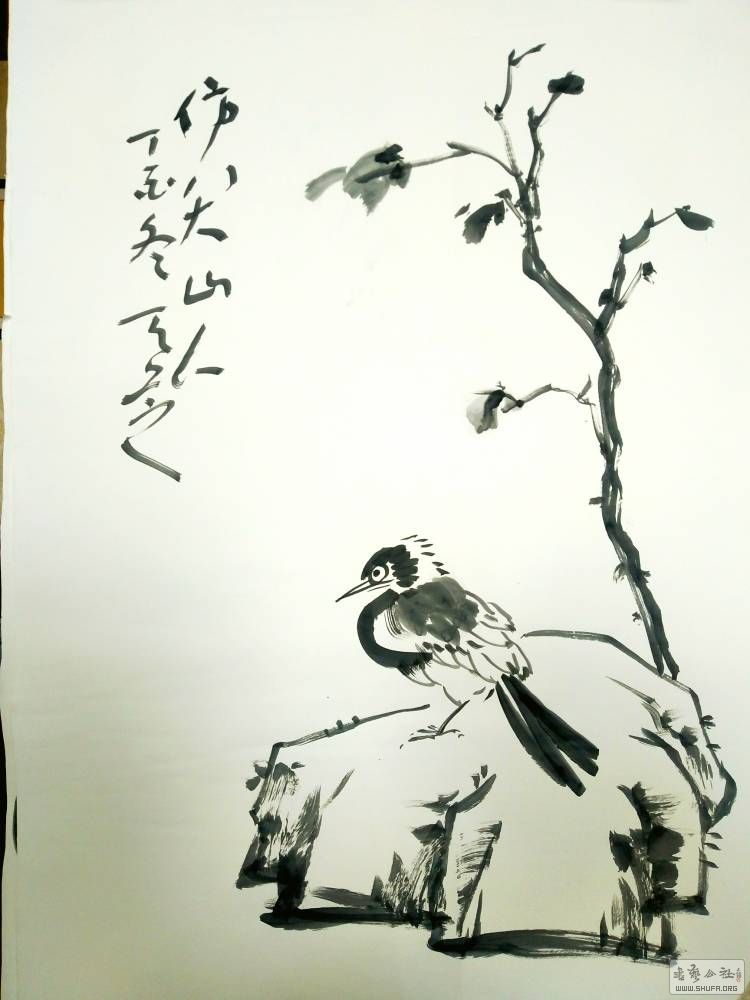 仿八大山人
丁酉冬
书艺公社
WWW.SHUFA.ORG